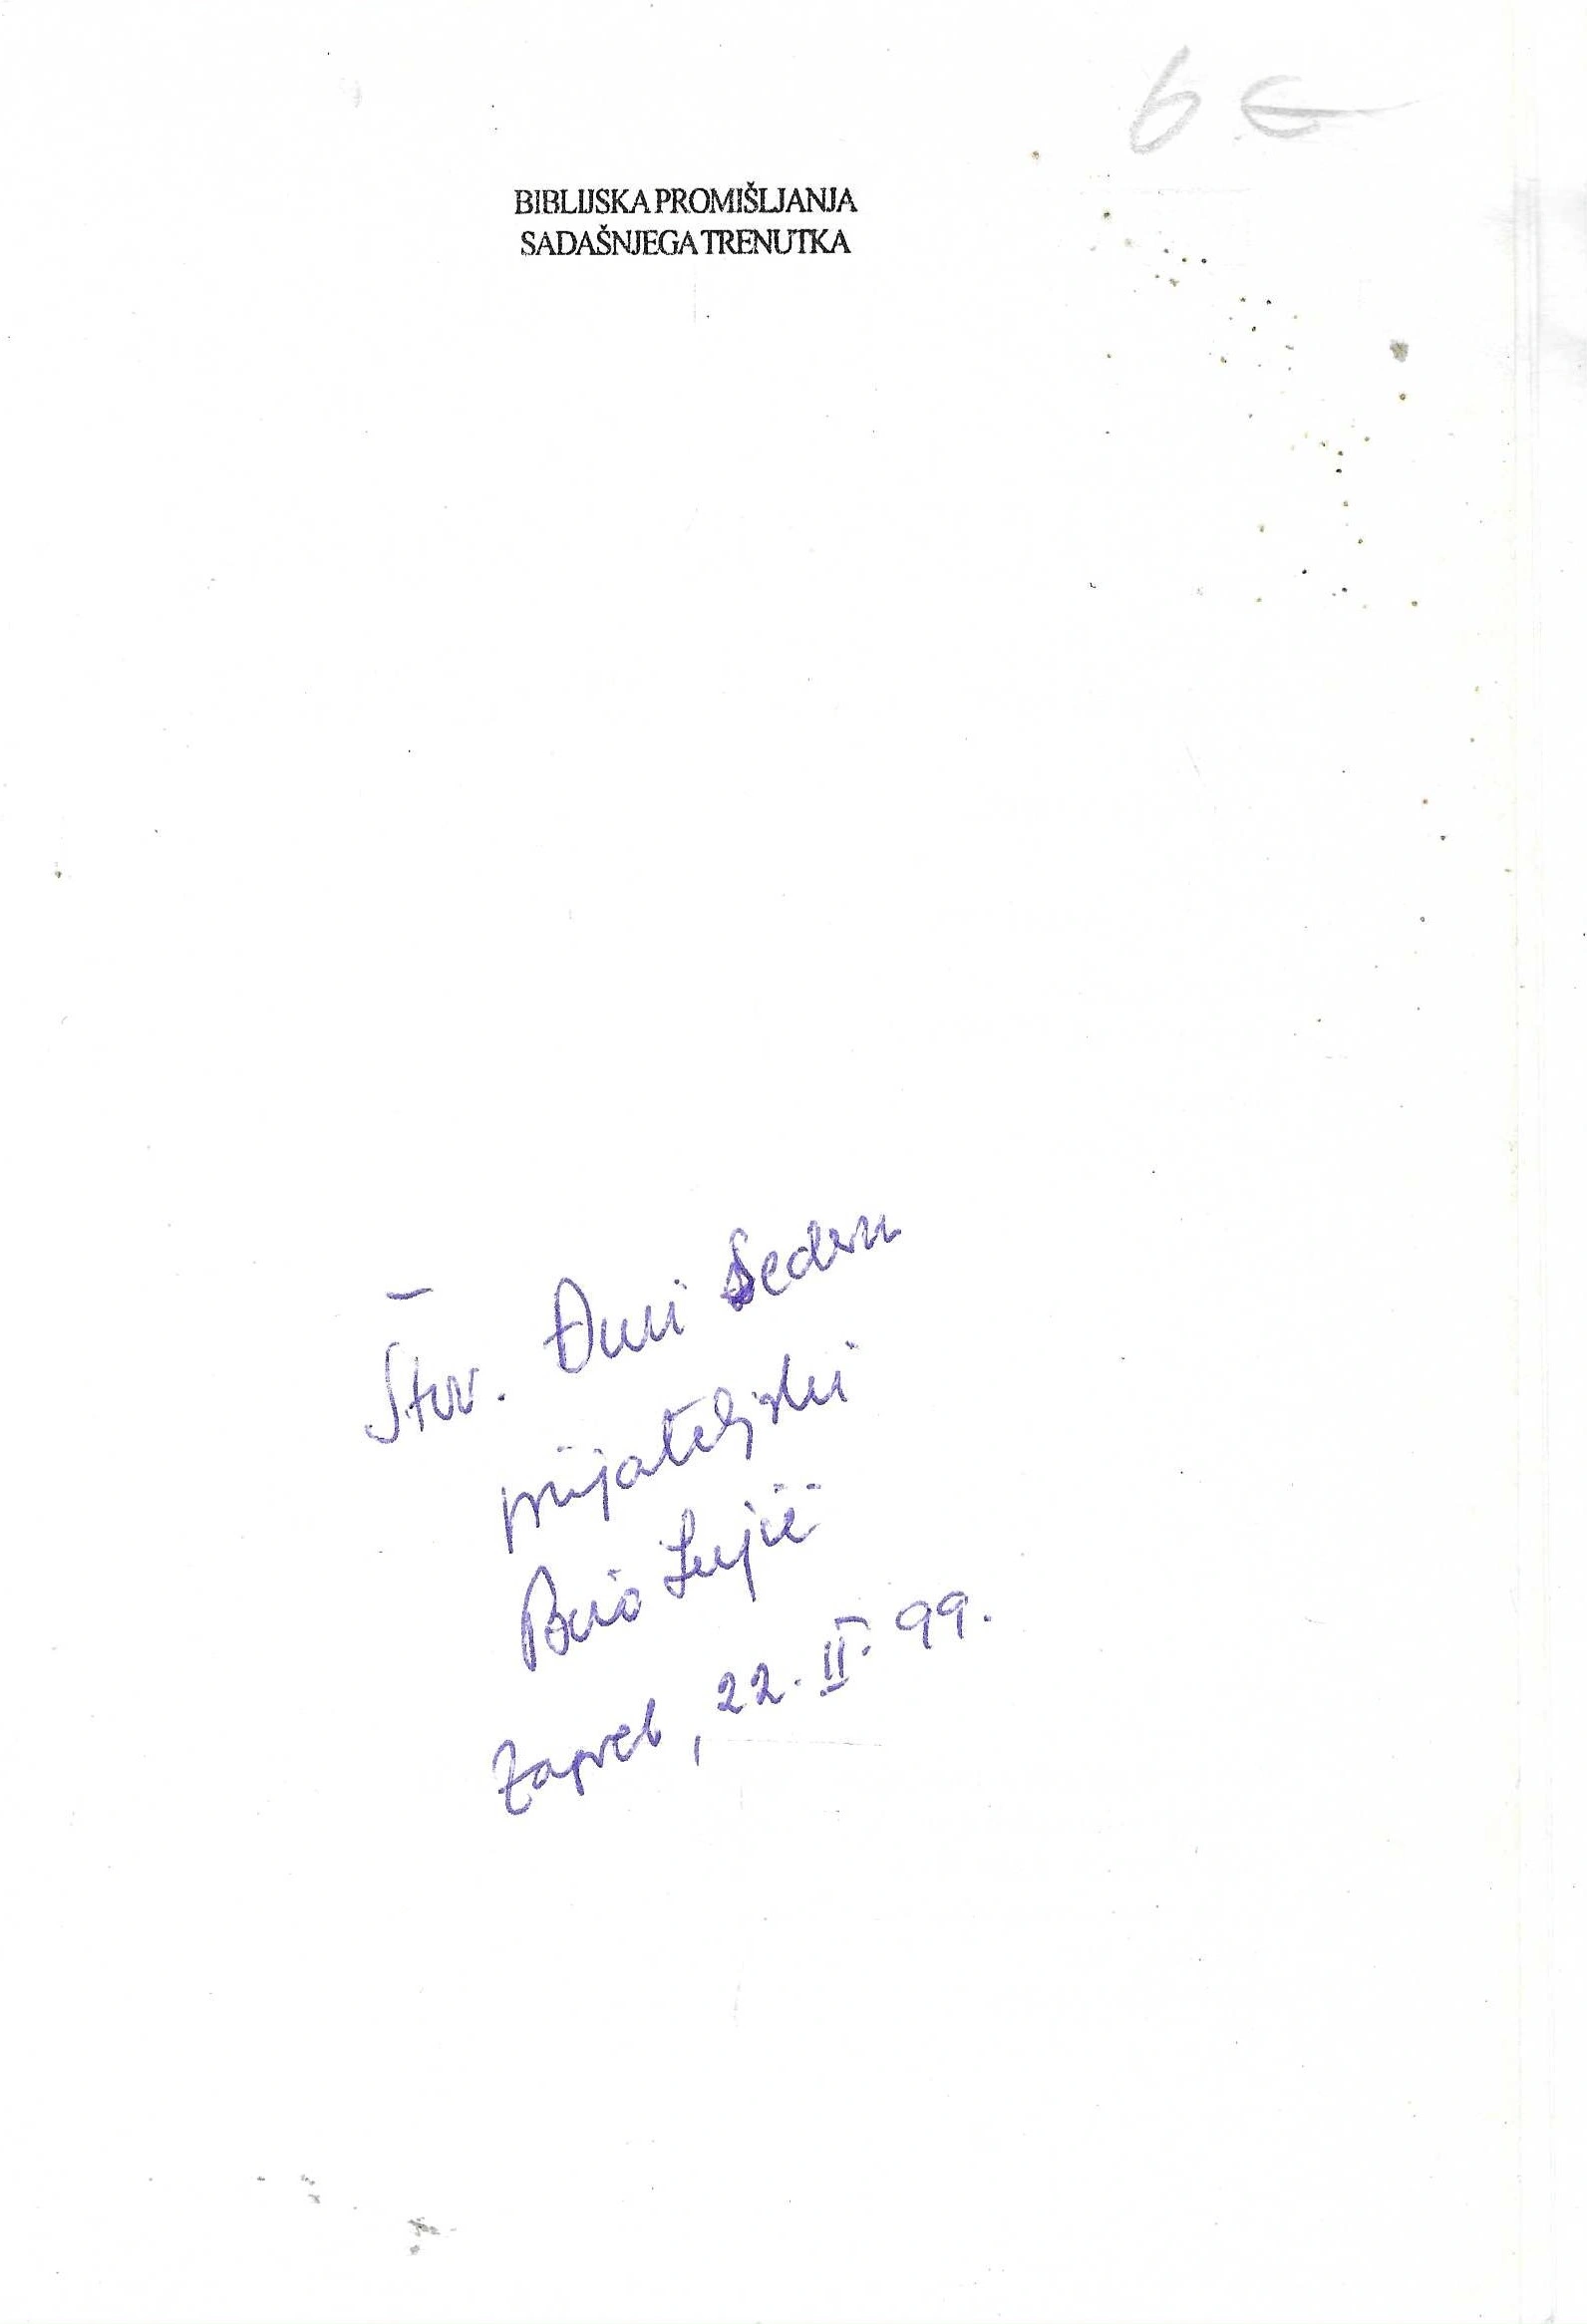 6 €
BIBLIJSKA PROMIŠLJANJA
SADAŠNJEGA TRENUTKA
Štov. Đuri Sederu
prijateljski
Božo Lujić
Zagreb, 22. II. 99.